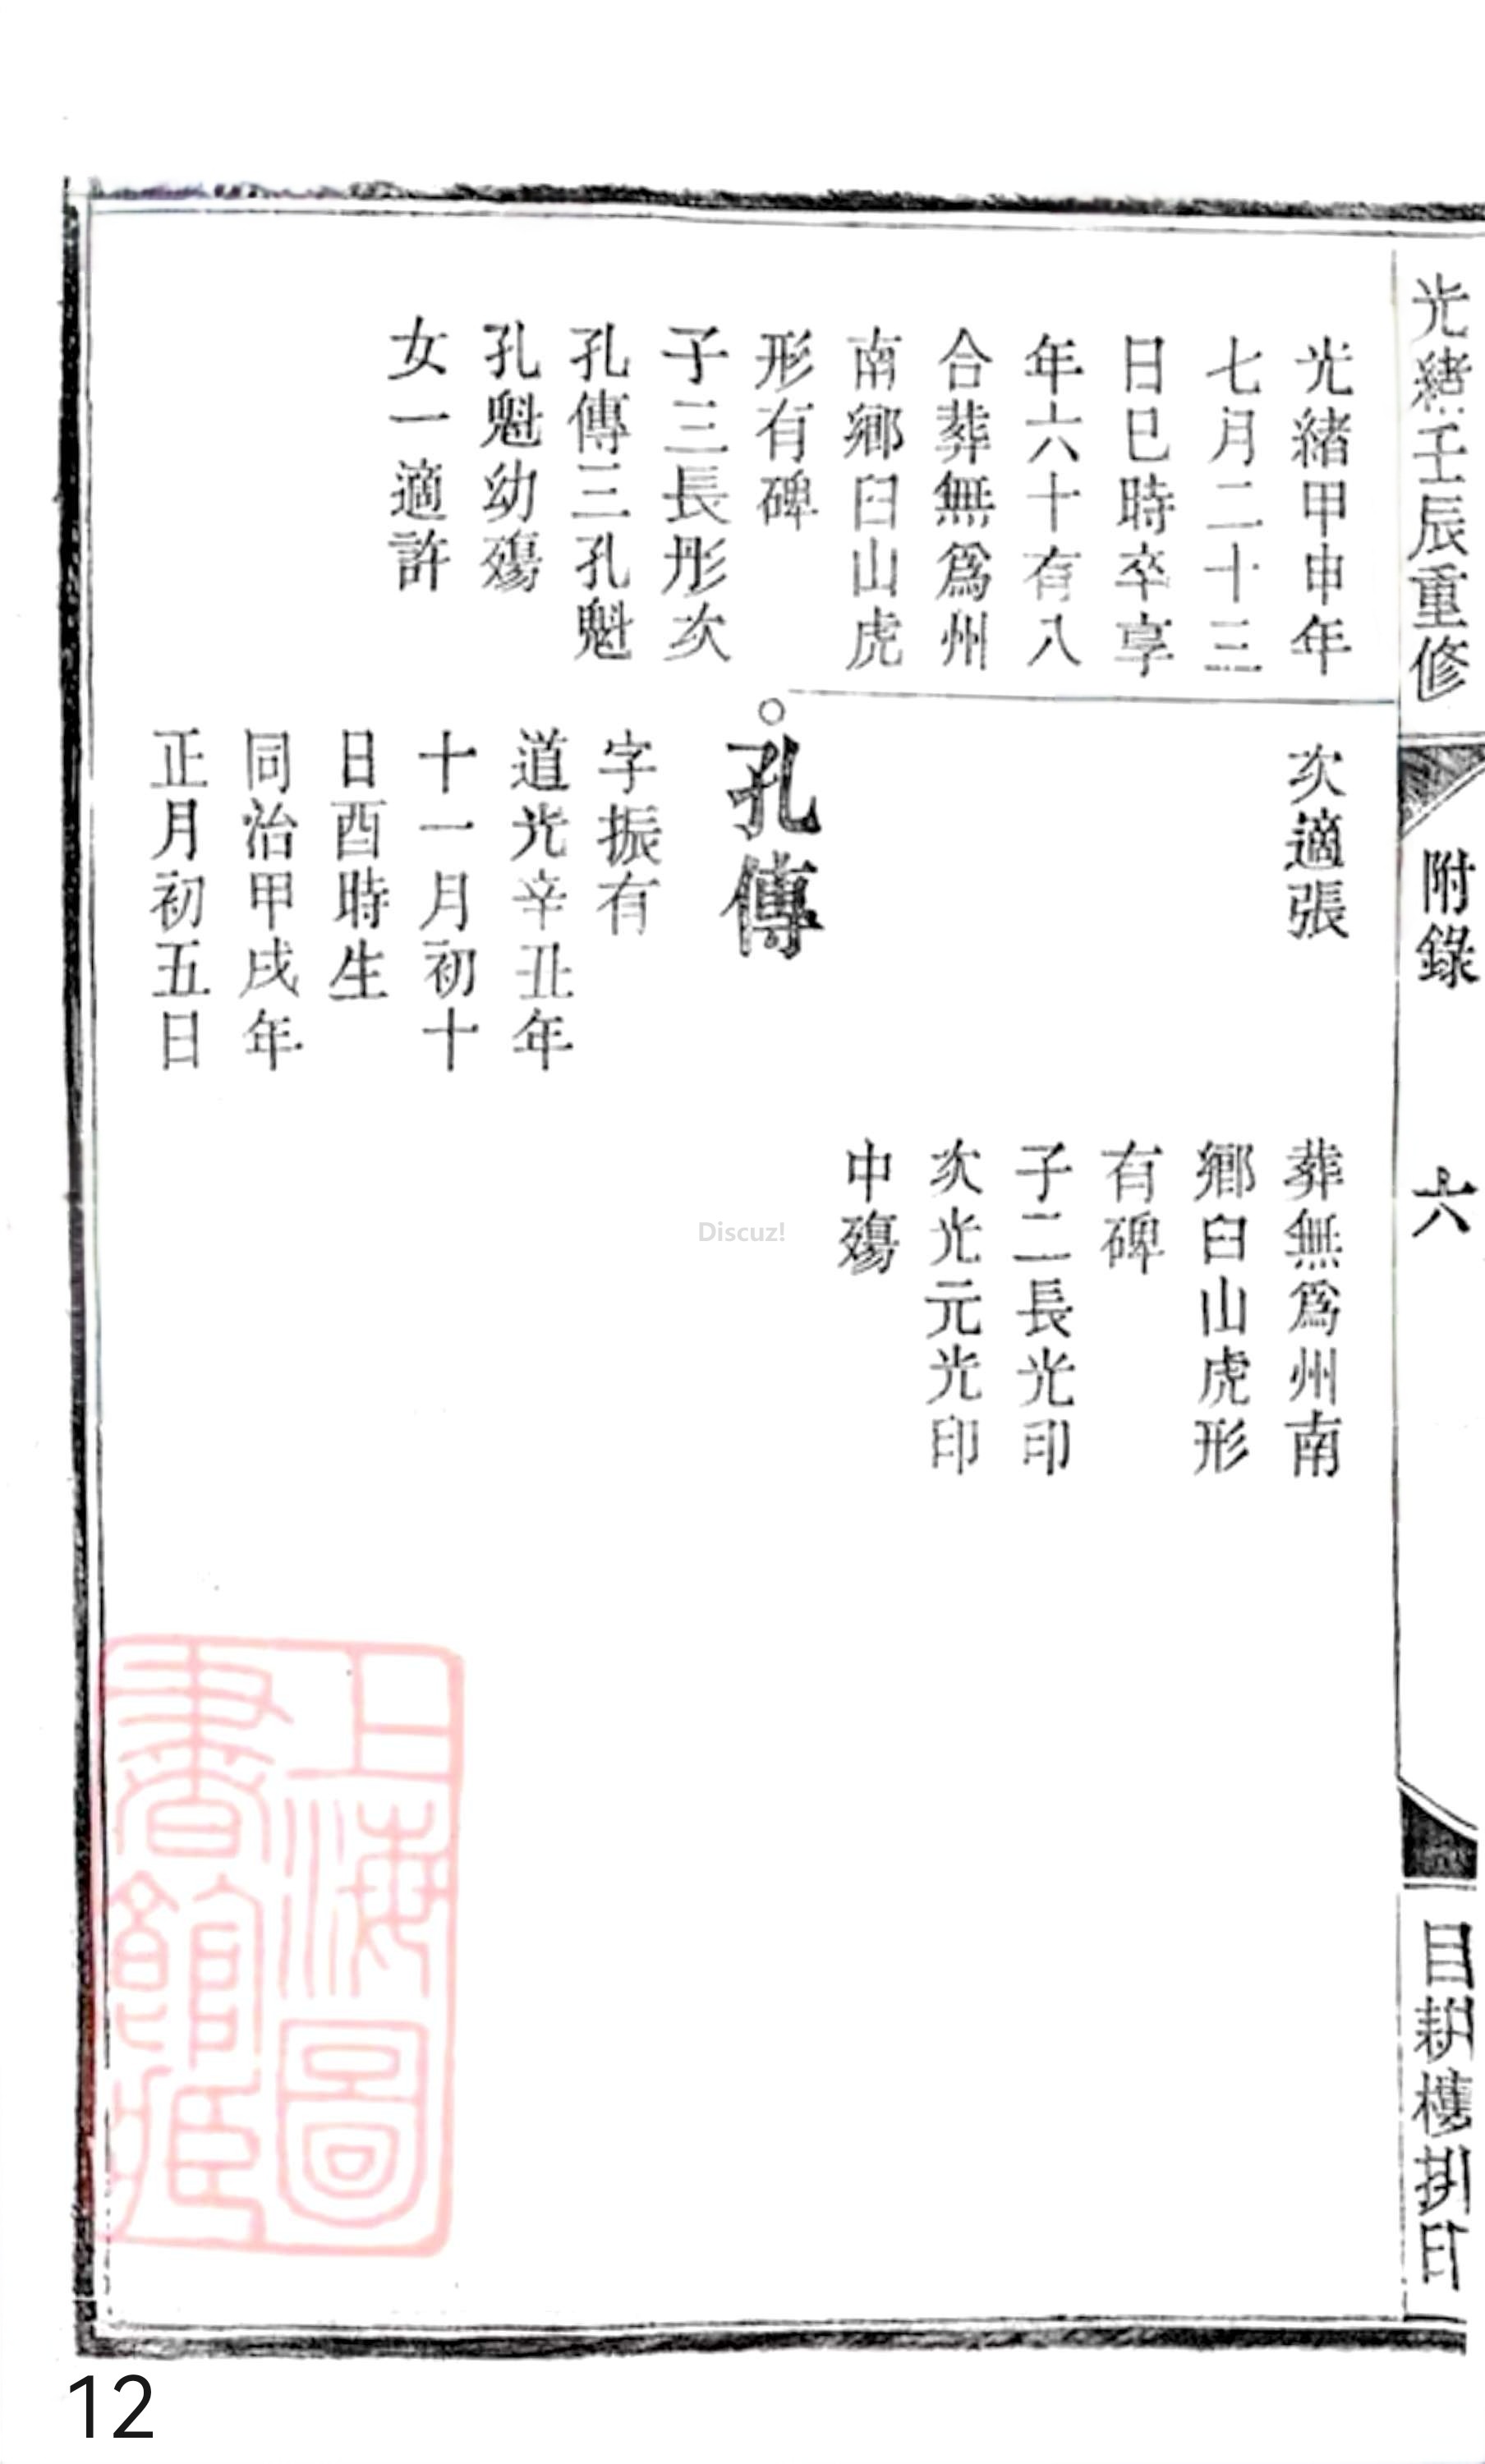 光緒壬辰重修
附錄
六
目耕樓排印
光緒甲申年
七月二十三
日巳時卒享
年六十有八
合葬無爲州
南鄉臼山虎
形有碑
子三長彤次
孔傳三孔魁
孔魁幼殤
女一適許
次適張
孔傳
字振有
道光辛丑年
十一月初十
日酉時生
同治甲戌年
正月初五日
葬無爲州南
鄉臼山虎形
有碑
子二長光印
次光元光印
中殤
Discuz!
上海圖
書館藏
12